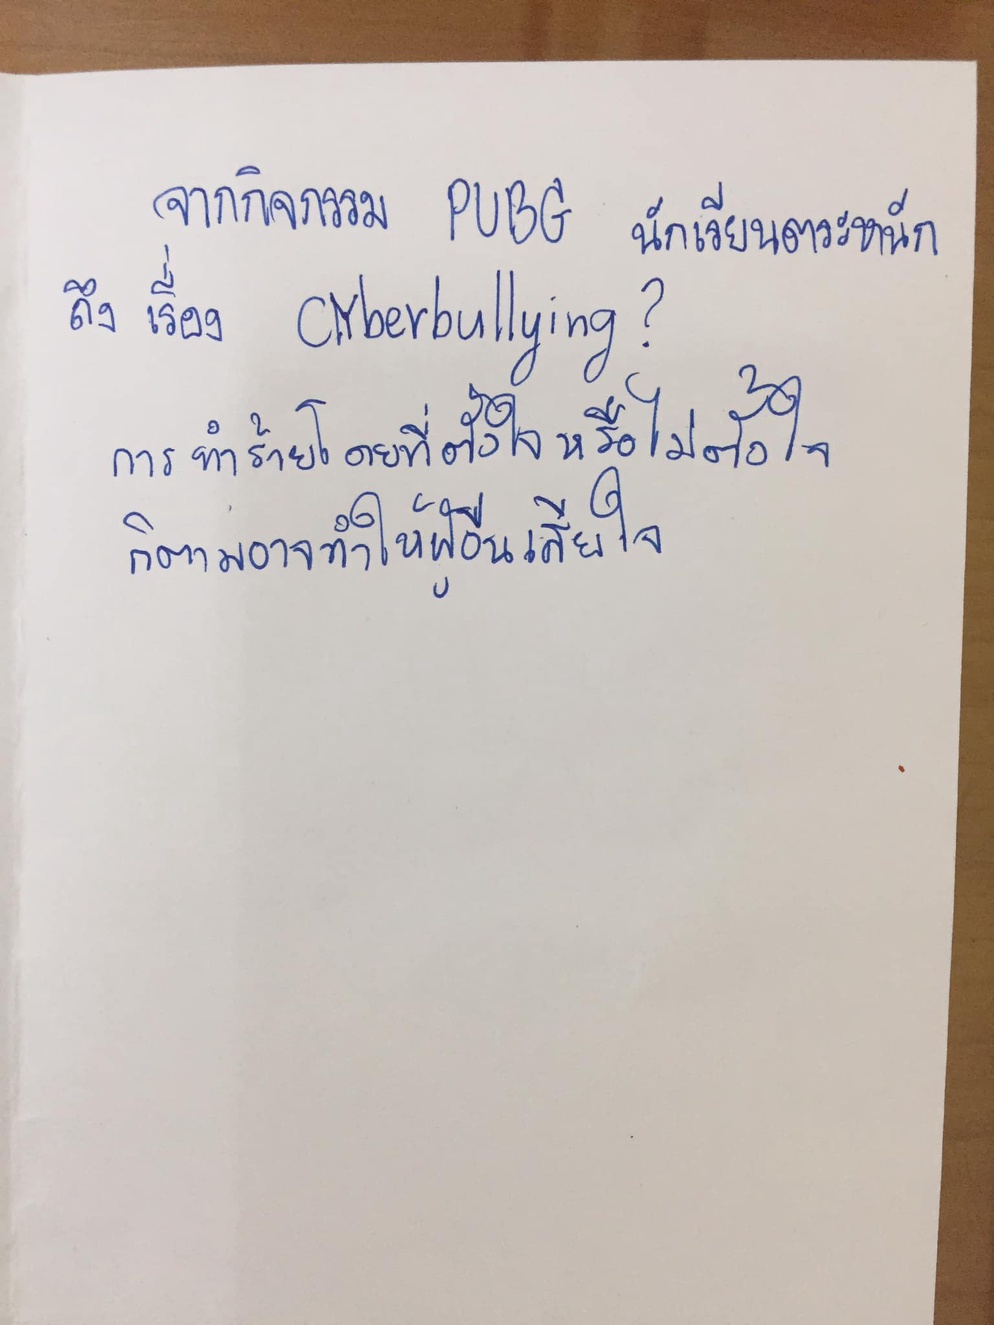 จากกิจกรรม PUBG นักเรียนตระหนัก
ถึง เรื่อง Cyberbullying?
การ ทำร้ายโดยที่ตั้งใจ หรือไม่ตั้งใจ
ก็ตามอาจทำให้ผู้อื่นเสียใจ